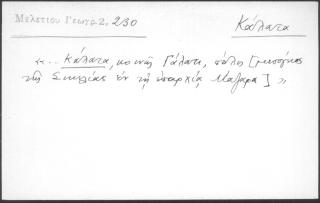 Μελετίου Γεωγρ. 2, 230
Κάλατα
«... Κάλατα, κοινῶς Γάλατι, πόλις [μεσόγειος
τῆς Σικελίας ἐν τῇ ἐπαρχίᾳ Μαζάρα] »